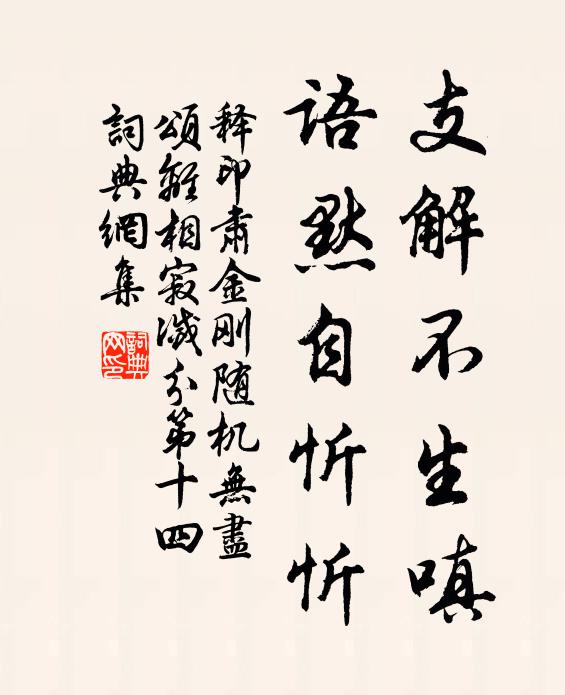 支解不生嗔
语默自忻忻
释印肃金刚随机無盡
頌離相寂滅分第十四
詞典網集
詞典網印